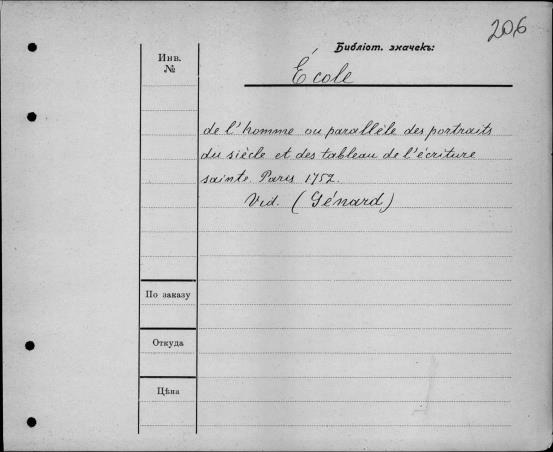 206
Библіот. значекъ:
Инв.
№
École
de l'homme ou parallèle des portraits
du siècle et des tableau de l'écriture
sainte. Paris 1752.
Vid. (Génard)
По заказу
Откуда
Цѣна